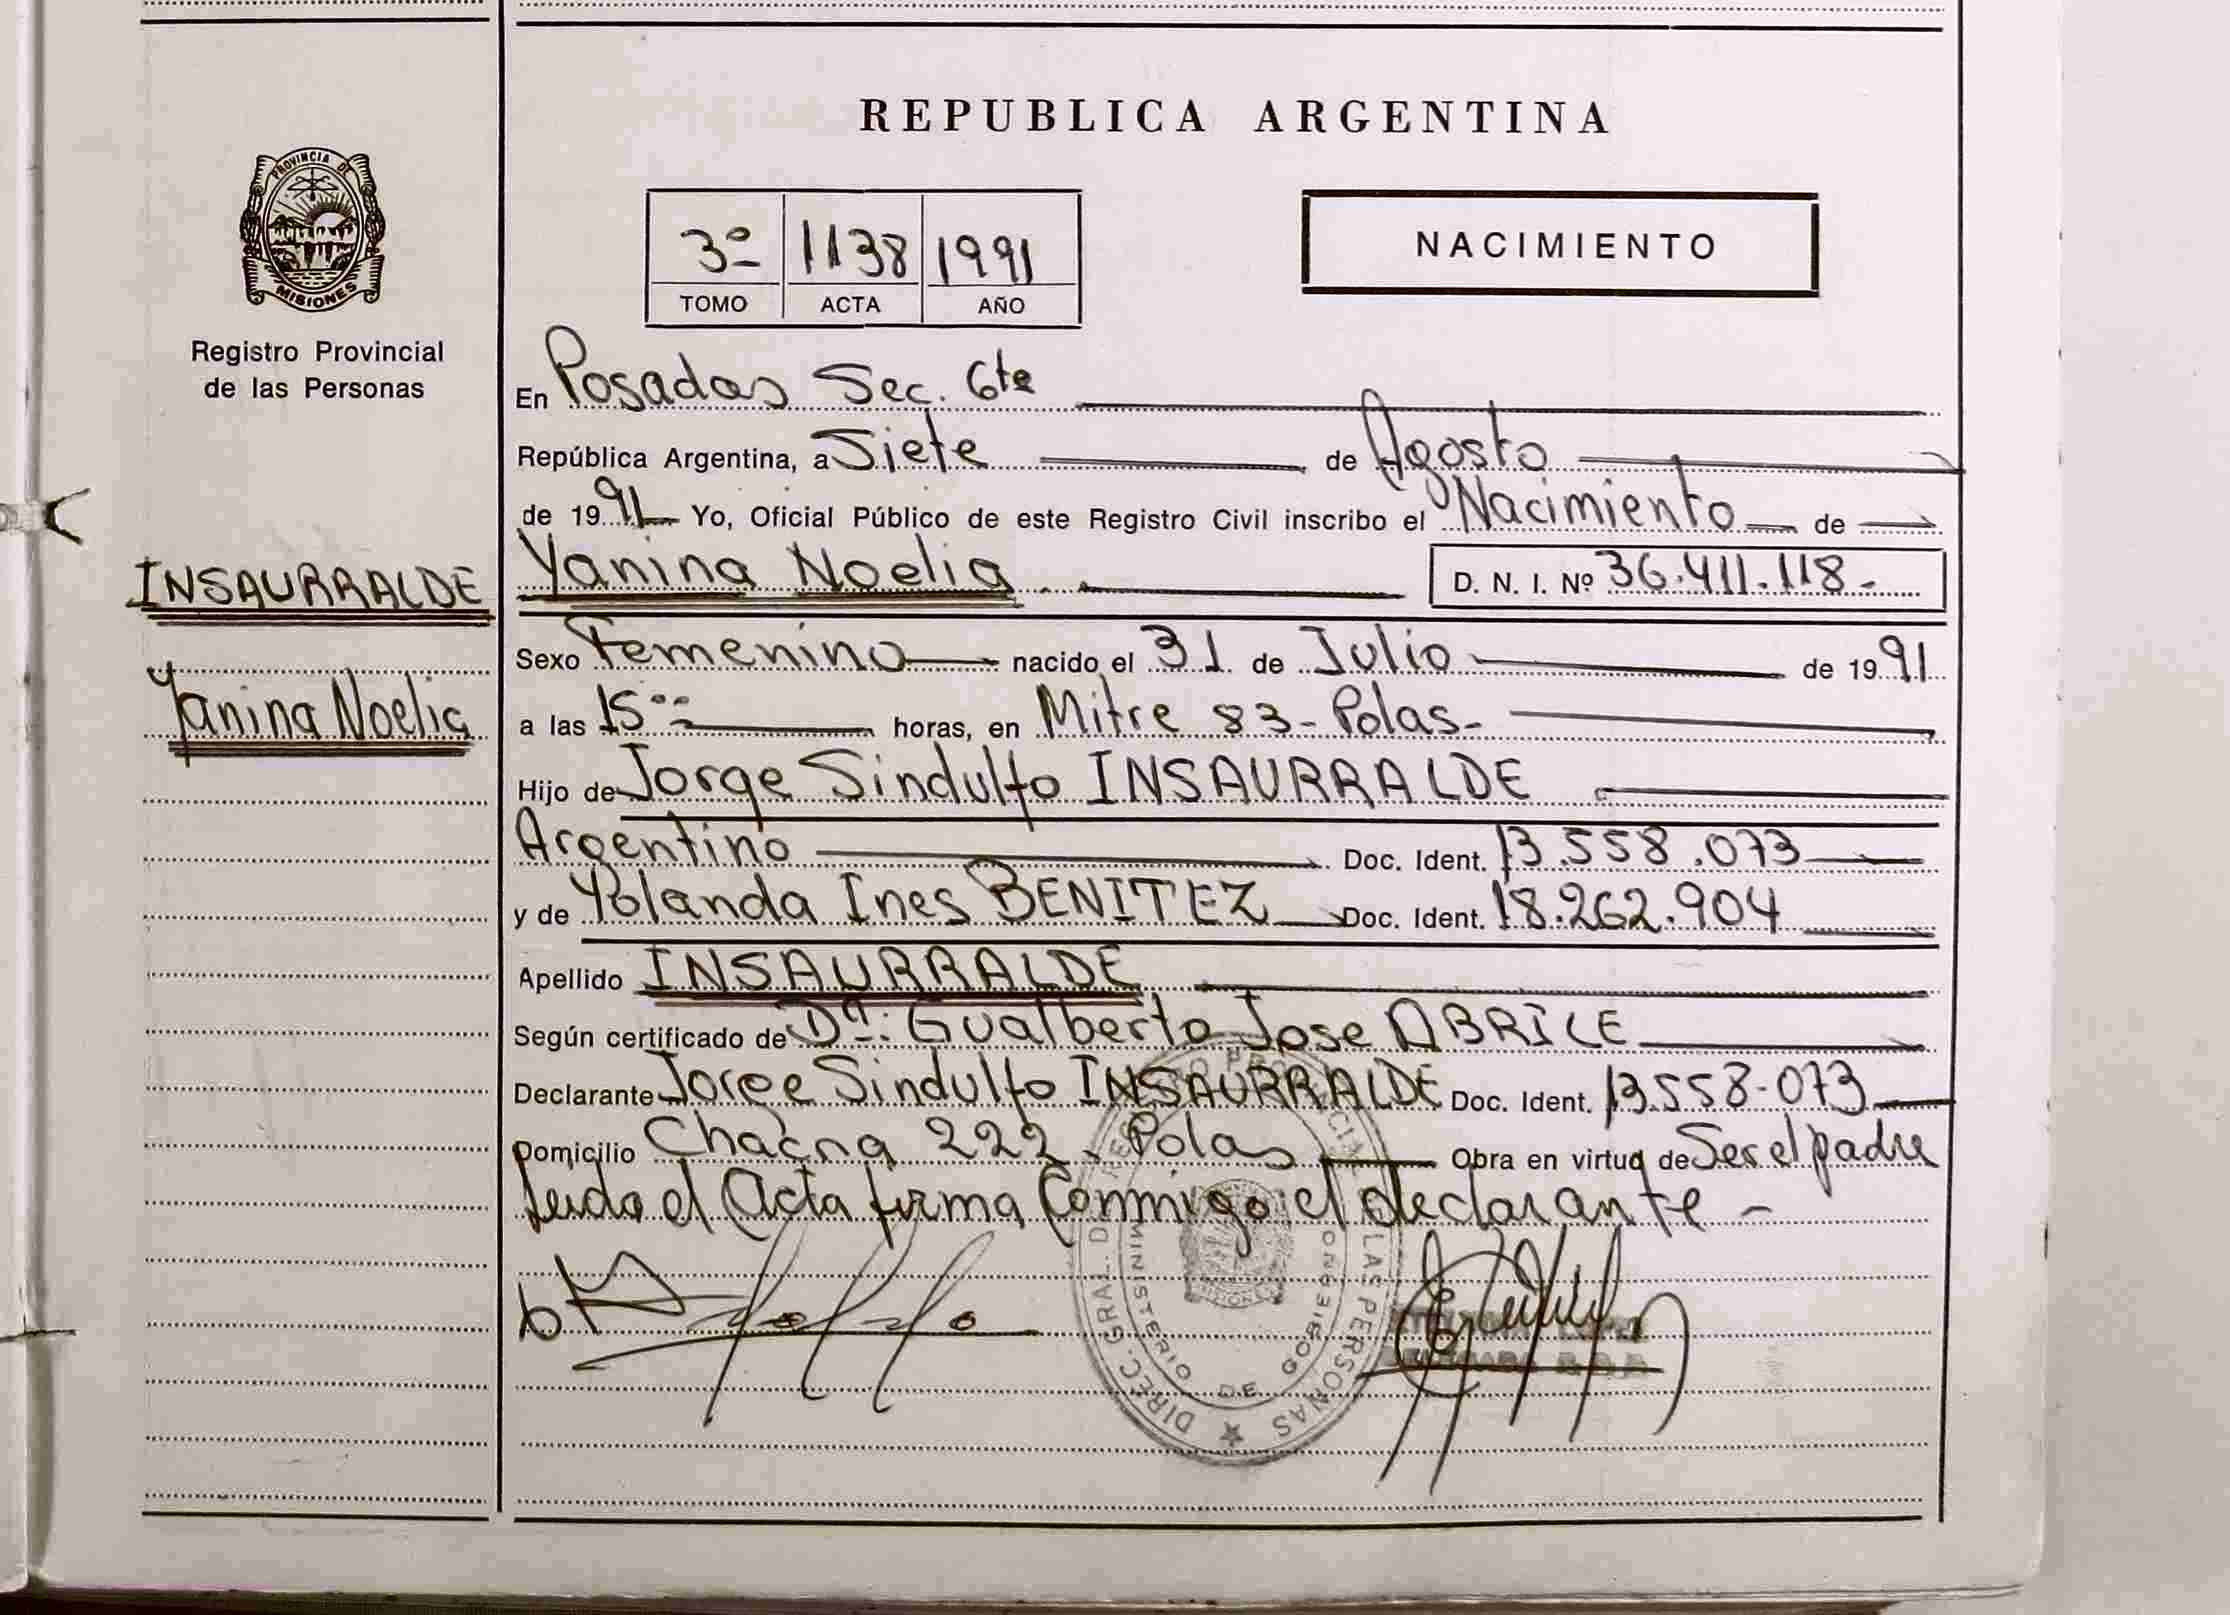 REPUBLICA ARGENTINA
PROVINCIA DE
MISIONES
Registro Provincial
de las Personas
3º 1138 1991
TOMO ACTA AÑO
NACIMIENTO
En Posadas Sec. 6ta
República Argentina, a Siete de Agosto
de 1991 Yo, Oficial Público de este Registro Civil inscribo el Nacimiento de
INSAURRALDE
Yanina Noelia
Yanina Noelia D. N. I. Nº 36.411.118-
Sexo Femenino nacido el 31 de Julio de 1991
a las 15ºº horas, en Mitre 83-Pdas-
Hijo de Jorge Sindulfo INSAURRALDE
Argentino Doc. Ident. 13.558.073
y de Yolanda Ines BENITEZ Doc. Ident. 18.262.904
Apellido INSAURRALDE
Según certificado de Dº: Gualberto Jose ABRILE
Declarante Jorge Sindulfo INSAURRALDE Doc. Ident. 13.558-073
Domicilio 222 Pdas Obra en virtud de Ser el padre
Leida el Acta firma Conmigo el declarante -
DIREC. GRAL. LAS PERSONAS
MINISTERIO DE GOBIERNO